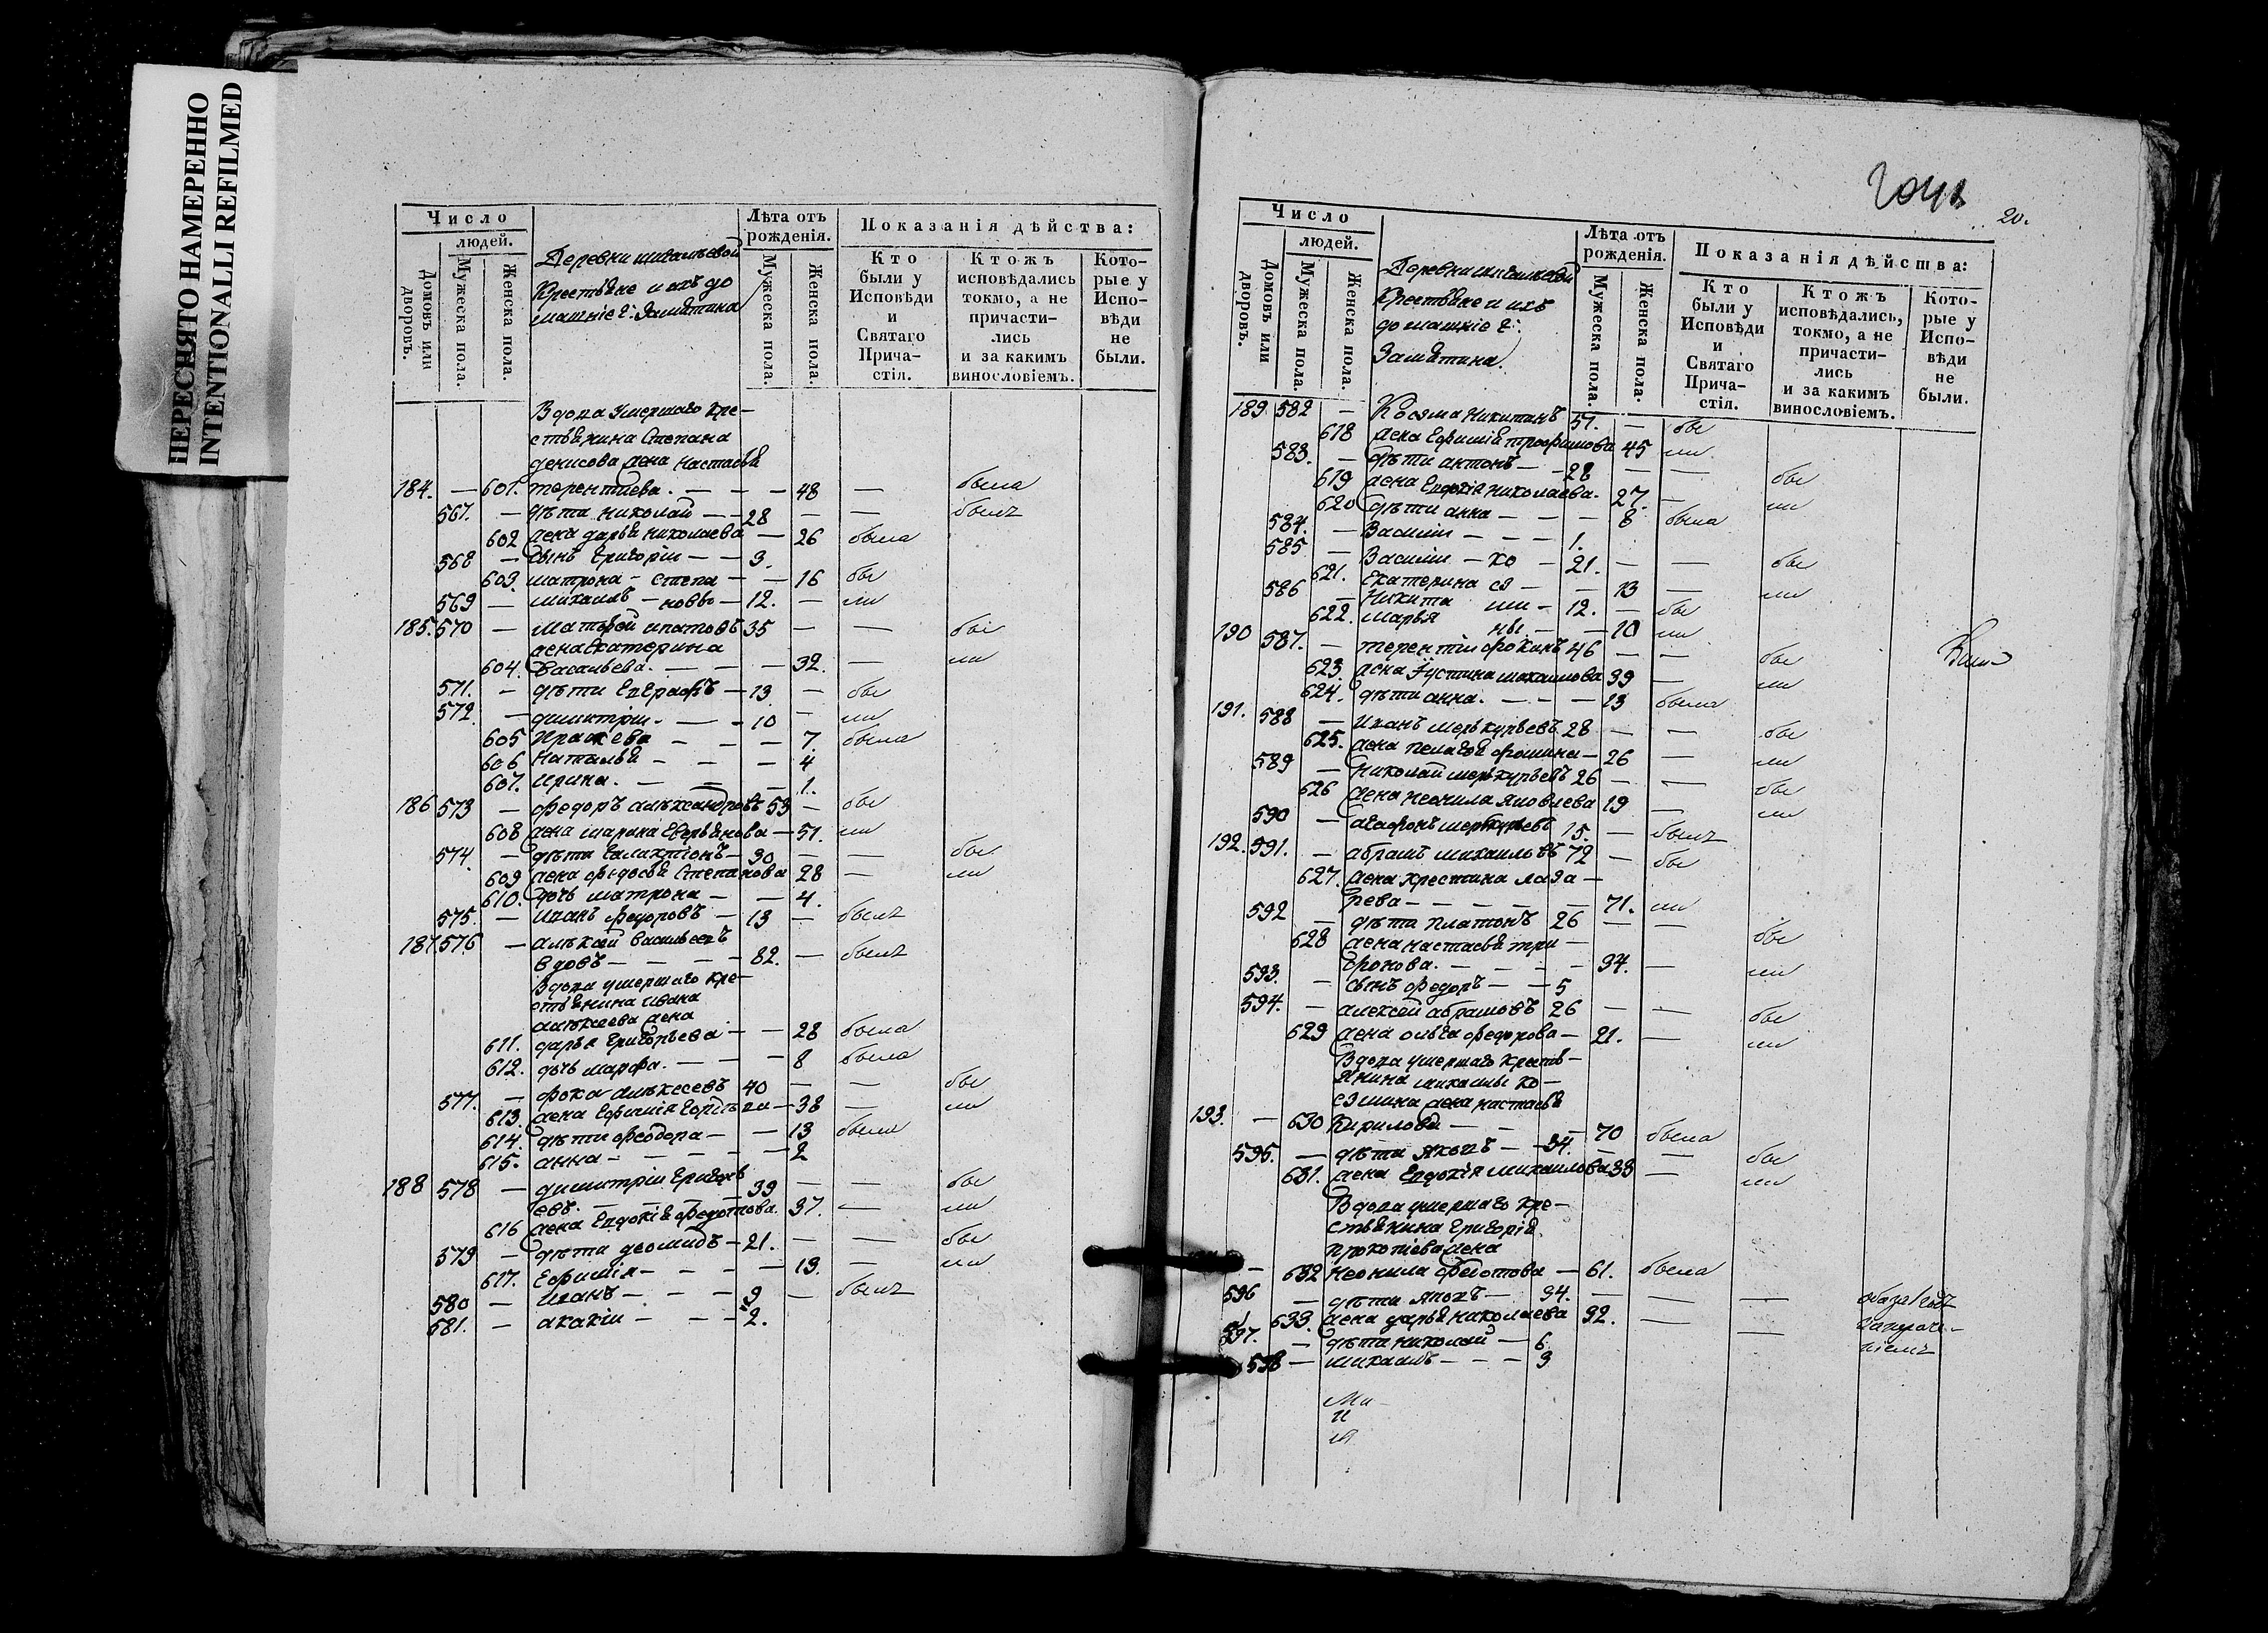 ПЕРЕСНЯТО НАМЕРЕННО
INTENTIONALLI REFILMED
Число
людей.
Домовъ или дворовъ.
Мужеска пола.
Женска пола.
Крестьяне и ихъ до
машніе г: Замятина
Лѣта отъ
рожденія.
Мужеска пола.
Женска пола.
Показанія дѣйства:
Кто
были у
Исповѣди
и
Святаго
Прича-
стія.
Ктожъ
исповѣдались
токмо, а не
причасти-
лись
и за какимъ
винословіемъ.
Кото-
рые у
Испо-
вѣди
не
были.
Вдова умершаго кре-
стьянина Степана
денисова жена настасья
184. — 601. терентиева. — — — 48 — была
567. — дѣти николай — — 28 — — былъ
602 жена дарья николаева — 26 была
568 — сынъ григорій — — 3.
603. матрона — степа — — 16 бы
569 — михаилъ — новы — 12. — ли
185. 570 — матвей ипатовъ 35 — — бы
жена екатерина
604. васильева. — — — 32. — ли
571. — дѣти евграфъ — 13 — бы
572. — димитрій. — — 10 — ли
605 — — — 7. была
606 наталья — — — 4
607. ирина. — — — 1.
186 573 — федоръ александровъ 53 — бы
608 жена марина — 51. ли
574 — дѣти галактіонъ — 30 — — бы
609 жена федосья степанова 28 — ли
610. дочь матрона — — 4.
575. — иванъ федоровъ — 13 — былъ
187. 576. — алексей васильевъ
вдовъ — — — — 82. — былъ
Вдова умершаго кре-
стьянина ивана
алексеева жена
611. дарья григорьева — — 28 была
612. дочь марфа. — — — 8 была
577. — фока алексеевъ 40 — — бы
613. жена ефимія — 38 — ли
614. дѣти феодора — — 13 была
615. анна — — — — — 2
188 578 — димитрій григорь
евъ. — 39 — — бы
616 жена евдокія федотова. 37. — ли
579 — дѣти деомидъ — 21. — — бы
617. ефимія — — — — 13. — ли
580 — иванъ — — — 9 — былъ
581. — акакій — — — 2.
20.
Число
людей.
Домовъ или дворовъ.
Мужеска пола.
Женска пола.
Крестьяне и ихъ
домашніе г:
Замятина.
Лѣта отъ
рожденія.
Мужеска пола.
Женска пола.
Показанія дѣйства:
Кто
были у
Исповѣди
и
Святаго
Прича-
стія.
Ктожъ
исповѣдались,
токмо, а не
причасти-
лись
и за какимъ
винословіемъ.
Кото-
рые у
Испо-
вѣди
не
были.
189 582 — Козма никитинъ 51. — бы
618 жена ефимія трофимова 45 ли
583. — дѣти антонъ — — 28 — — бы
619 жена евдокія николаева. 27. — ли
620 дѣти анна — — — 8 была
584. — Василій — — — 1.
585 — Василій — ко — 21. — — бы
621. Екатерина сз — — 13 — ли
586 — Никита ми — 12. — бы
622. марья ны — — 10 ли
190 587. — терентій фокинъ 46 — — бы
623. жена устина михаилова 39 — ли
624. дѣти анна. — — — 13 была
191. 588 — иванъ меркурьевъ 28 — — бы
625. жена пелагея фомина — 26 — ли
589 — николай меркурьевъ 26 — — бы
626 жена неонила яковлева 19 — ли
590 — агафонъ меркурьевъ 15. — былъ
192. 591. — абрамъ михаиловъ 72 — бы
627. жена крестина лаза —
рева — — — — — 71. ли
592 — дѣти платонъ 26 — — бы
628 жена настасья три —
фонова. — — — — 34. — ли
593. — сынъ федоръ — — 5
594. — алексей абрамовъ 26 — — бы
629 жена ольга федорова — 21. — ли
Вдова умершаго кресть —
янина михаилы ко —
сзмина жена настасья
193. — 630 Кирилова — — — 70 была
595. — дѣти яковъ — — 34. — — бы
631. жена евдокія михаилова 33 — ли
Вдова умершаго кре —
стьянина григорія
прокопіева жена
— 632 неонила федотова — 61. была
596 — дѣти яковъ — 34. — — —
633. жена дарья николаева 32. — —
597. — дѣти николай — 6
598 — михаилъ — — — 3